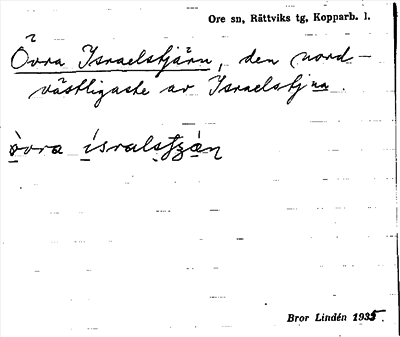 Ore sn, Rättviks tg, Kopparb. l.
Övra Israelstjärn, den nord-
västligaste av Israelstjna.
òvra ísralstʒän
Bror Lindén 1935.